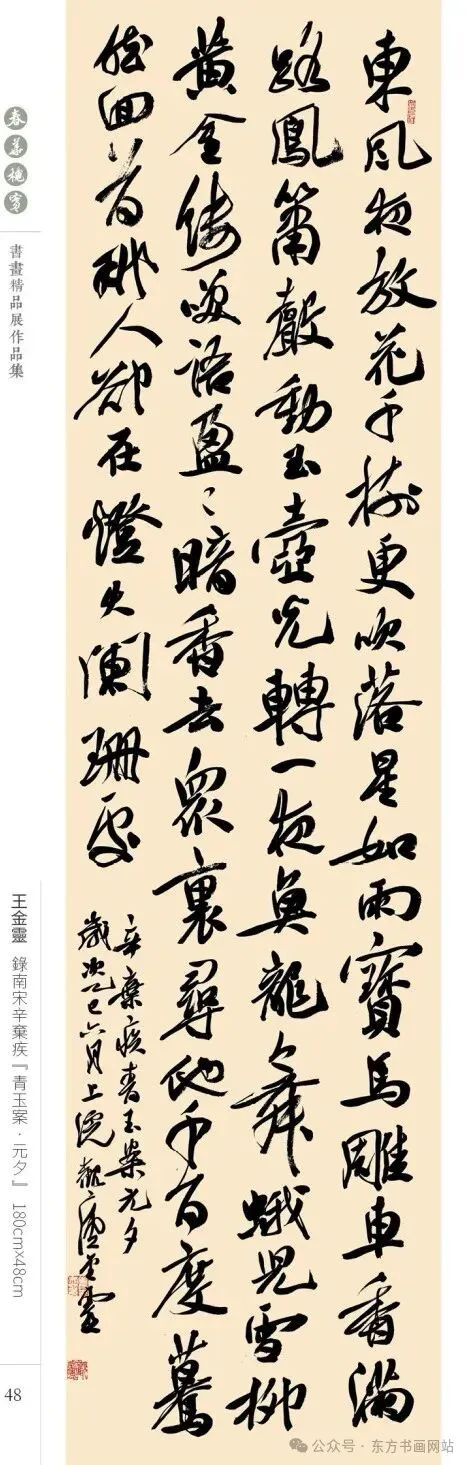 東風夜放花千樹更吹落星如雨寶馬雕車香滿
路鳳簫聲動玉壺光轉一夜魚龍舞蛾兒雪柳
黃金縷笑語盈〻暗香去衆裏尋他千百度驀
然回首那人卻在燈火闌珊處
辛棄疾青玉案元夕
歲次乙巳六月上浣金靈
春華穐實
書畫精品展作品集
王金靈 錄南宋辛棄疾『青玉案·元夕』 180cm×48cm
48
公众号·东方书画网站